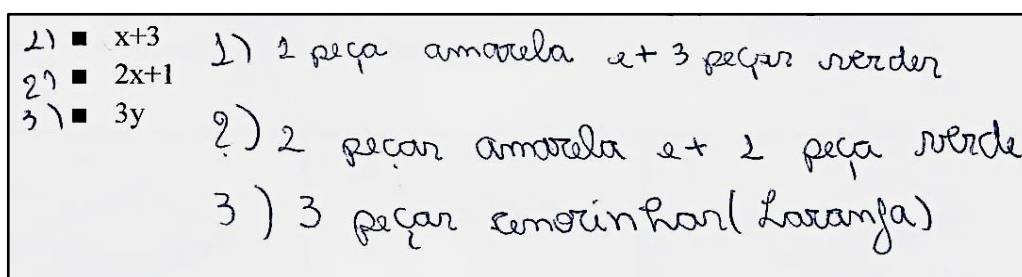 1) ▪ x+3
2) ▪ 2x+1
3) ▪ 3y
1) 1 peça amarela e+ 3 peças verdes
2) 2 peças amarela e+ 1 peça verde
3) 3 peças cenorinhas (Laranja)